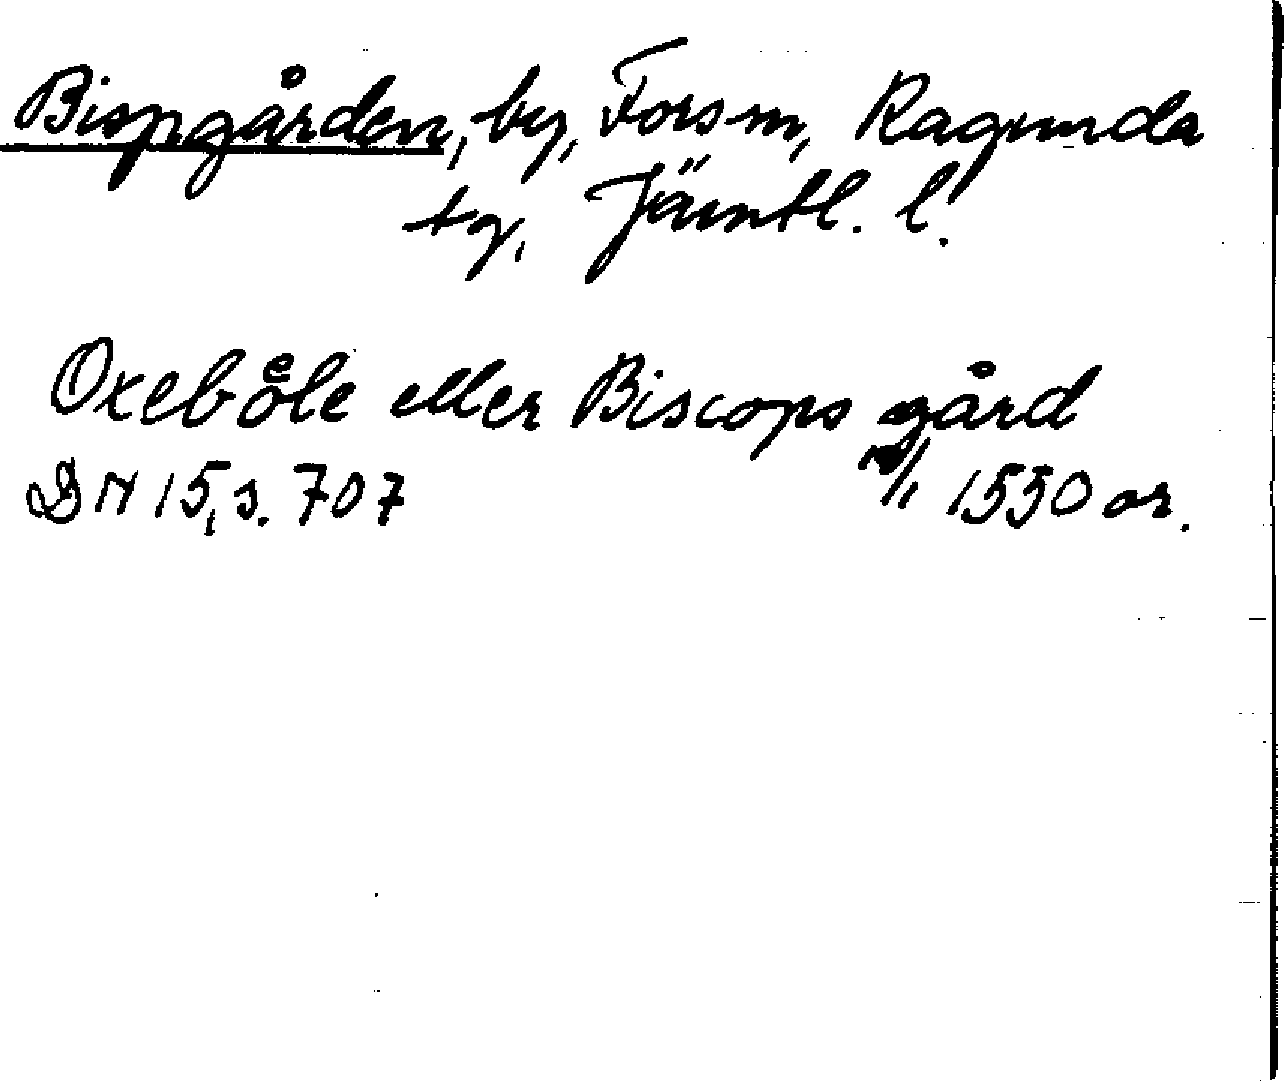 Bispgården, by, Fors sn, Ragunda
tg, Jämtl. l.
Oxeboͤle eller Biscops gård
DN 15, s. 707 /1 1550 or.